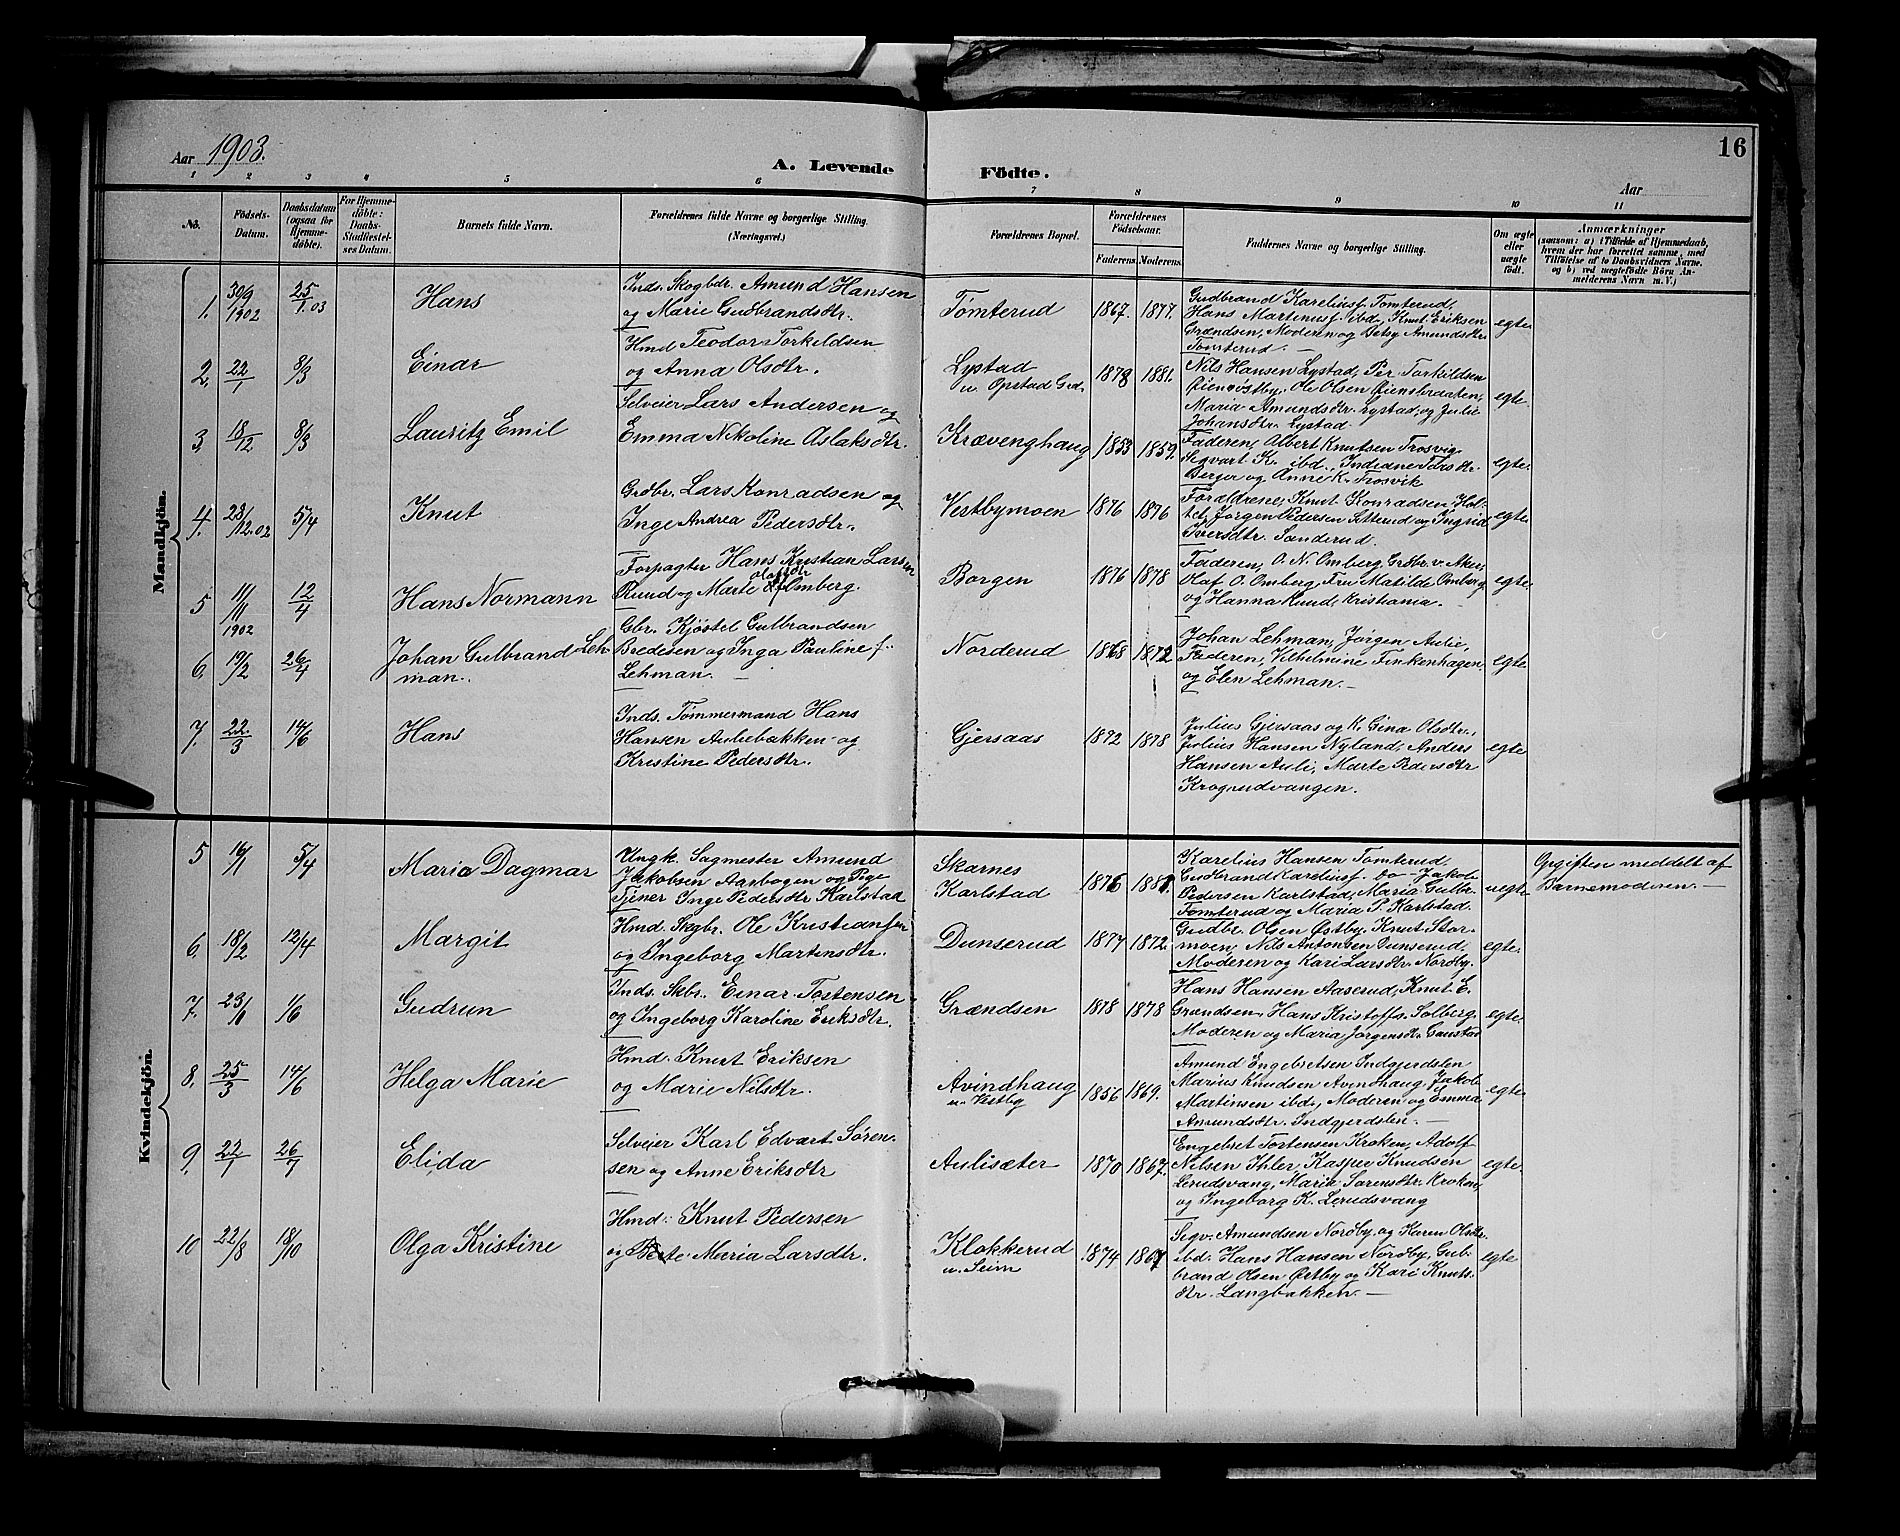 Aar 1903.
A. Levende Födte.
16
Aar
1 2 3 4 5 6 7 8 9 10 11
No.
Födsels-
Datum.
Daabsdatum
(ogsaa for
Hjemme-
döbte).
For Hjemme-
döbte:
Daabs-
Stadfæstel-
ses Datum.
Barnets fulde Navn.
Forældrenes fulde Navne og borgerlige Stilling.
(Næringsvei.)
Forældrenes Bopæl.
Forældrenes
Födselsaar.
Faderens. Moderens.
Faddernes Navne og borgerlige Stilling.
Om ægte
eller
uægte
födt.
Anmærkninger
(saasom: a) i Tilfælde af Hjemmedaab,
hvem der har forrettet samme, med
Tilföielse af to Daabsvidners Navne.
og b) ved uægtefödte Börn An-
melderens Navn m. V.)
Mandkjön.
1. 30/9 1902 25/1.03 Hans
Inds. Skogbdr. Amund Hansen
og Marie Gudbrandsdtr.
Tømterud 1867. 1877.
Gudbrand Kareliusf. Tomterud,
Hans Martinusf. ibd., Knut Eriksen
Grændsen, Moderen og Betsy Amundsdtr.
Tomterud. —
egte
2. 22/1 8/3 Einar
Hmd Teodor Torkildsen
og Anna Olsdtr.
Lystad
u. Opstad Grd. 1878 1881.
Nils Hansen Lystad, Per Torkildsen
Ole Olsen
Maria Amundsdtr. Lystad, og Julie
Johansdtr. Lystad
egte.
3. 18/12 8/3 Lauritz Emil
Selveier Lars Andersen og
Emma Nikoline Aslaksdtr.
Krævenghaug 1853 1859.
Faderen, Albert Knutsen Trosvig,
Segvart K. ibd., Indiane
Berger og Anne K. Trosvik
egte.
4. 23/12.02 5/4 Knut
Grdbr. Lars Konradsen og
Inge Andrea Pedersdtr.
Vestbymoen 1876 1876
Forældrene, Knut Konradsen Hol-
tet, Jørgen Pedersen Setterud og Ingrid
Iversdtr. Sønderud.
egte.
5 11/11 1902 12/4 Hans Normann
Forpagter Hans Kristian Larsen
Ruud og Marte Olafsdtr Omberg.
Borgen 1876 1878
Faderen, O. N. Omberg, Grdbr. v. Aker,
Olaf O. Omberg, Fru Matilde Omberg
og Hanna Ruud, Kristiania. —
egte.
6. 19/2 26/4 Johan Gulbrand Leh-
man..
Gbr. Kjøstel Gulbrandsen
Bredesen og Inga Pauline f.
Lehman. —
Norderud 1868 1872
Johan Lehman, Jørgen Aulie,
Faderen, Vilhelmine Finkenhagen,
og Elen Lehman. —
egte
7. 22/3 14/6 Hans
Inds. Tømmermand Hans
Hansen Auliebækken og
Kristine Pedersdtr.
Gjersaas 1872 1878
Julius Gjersaas og K. Gina Olsdtr.,
Julius Hansen Nyland, Anders
Hansen Auli, Marte Pedersdtr
Krogsudvangen.
egte
Kvindekjön.
5 16/1 5/4 Maria Dagmar
Ungk. Sagmester Amund
Jakobsen Aarbogen og Pige
Tjener Inge Pedersdtr Karlstad
Skarnes
Karlstad 1876 1881.
Karelius Hansen Tomterud,
Gudbrand Kareliusf. Do — Jakob
Pedersen Karlstad, Maria Gulbr.
Tomterud og Maria P. Karlstad.
uegte
Opgiften meddelt af
Barnemoderen. —
6. 18/2 12/4 Margit
Hmd. Skgbr. Ole Kristiansen
og Ingeborg Martinsdtr.
Dunserud 1877 1872.
Gudbr. Olsen Østby, Knut Stor-
moen, Nils Antonsen Dunserud,
Moderen og Kari Larsdtr. Nordby.
egte.
7. 23/1 1/6 Gudrun
Inds. Skbr. Einar Tostensen
og Ingeborg Karoline Eriksdtr.
Grændsen 1878 1878
Hans Hansen Aaserud, Knut E.
Grændsen, Hans Kristoffs. Solberg,
Moderen og Maria Jørgensdtr. Gaustad
egte.
8. 25/3 14/6 Helga Marie
Hmd. Knut Eriksen
og Marie Nilsdtr.
Avindhaug
u. Vestby 1856 1869.
Amund Engebretsen Indgjerdslen
Marius Knudsen Avindhaug, Jakob
Martinsen ibd., Moderen og Emma
Amundsdtr. Indgjerdslen. —
egte
9. 22/1 26/7 Elida
Selveier Karl Edvart Søren-
sen og Anne Eriksdtr
Aulisæter 1870 1867.
Engebret Tostensen Kroken, Adolf
Nilsen Ihler, Kasper Knudsen
Lerudsvang, Maria Sørensdtr. Kroken,
og Ingeborg K. Lerudsvang
egte.
10 22/8 18/10 Olga Kristine
Hmd. Knut Pedersen
og Maria Larsdtr.
Klokkerud
u. Seim 1874 1867
Segv. Amundsen Nordby og Karen Olsdtr.
ibd. Hans Hansen Nordby, Gul-
brand Olsen Østby og Kari Knuts-
dtr. Langbakken. —
egte